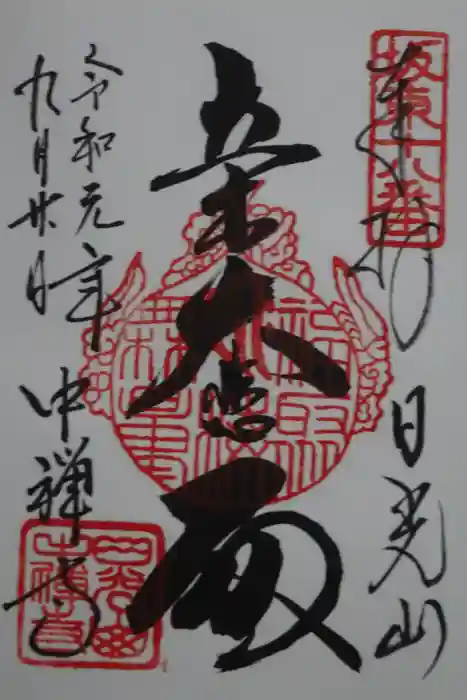 奉拝
坂東十八番
日光山
立木大悲殿
令和元年
九月廿日
中禅寺